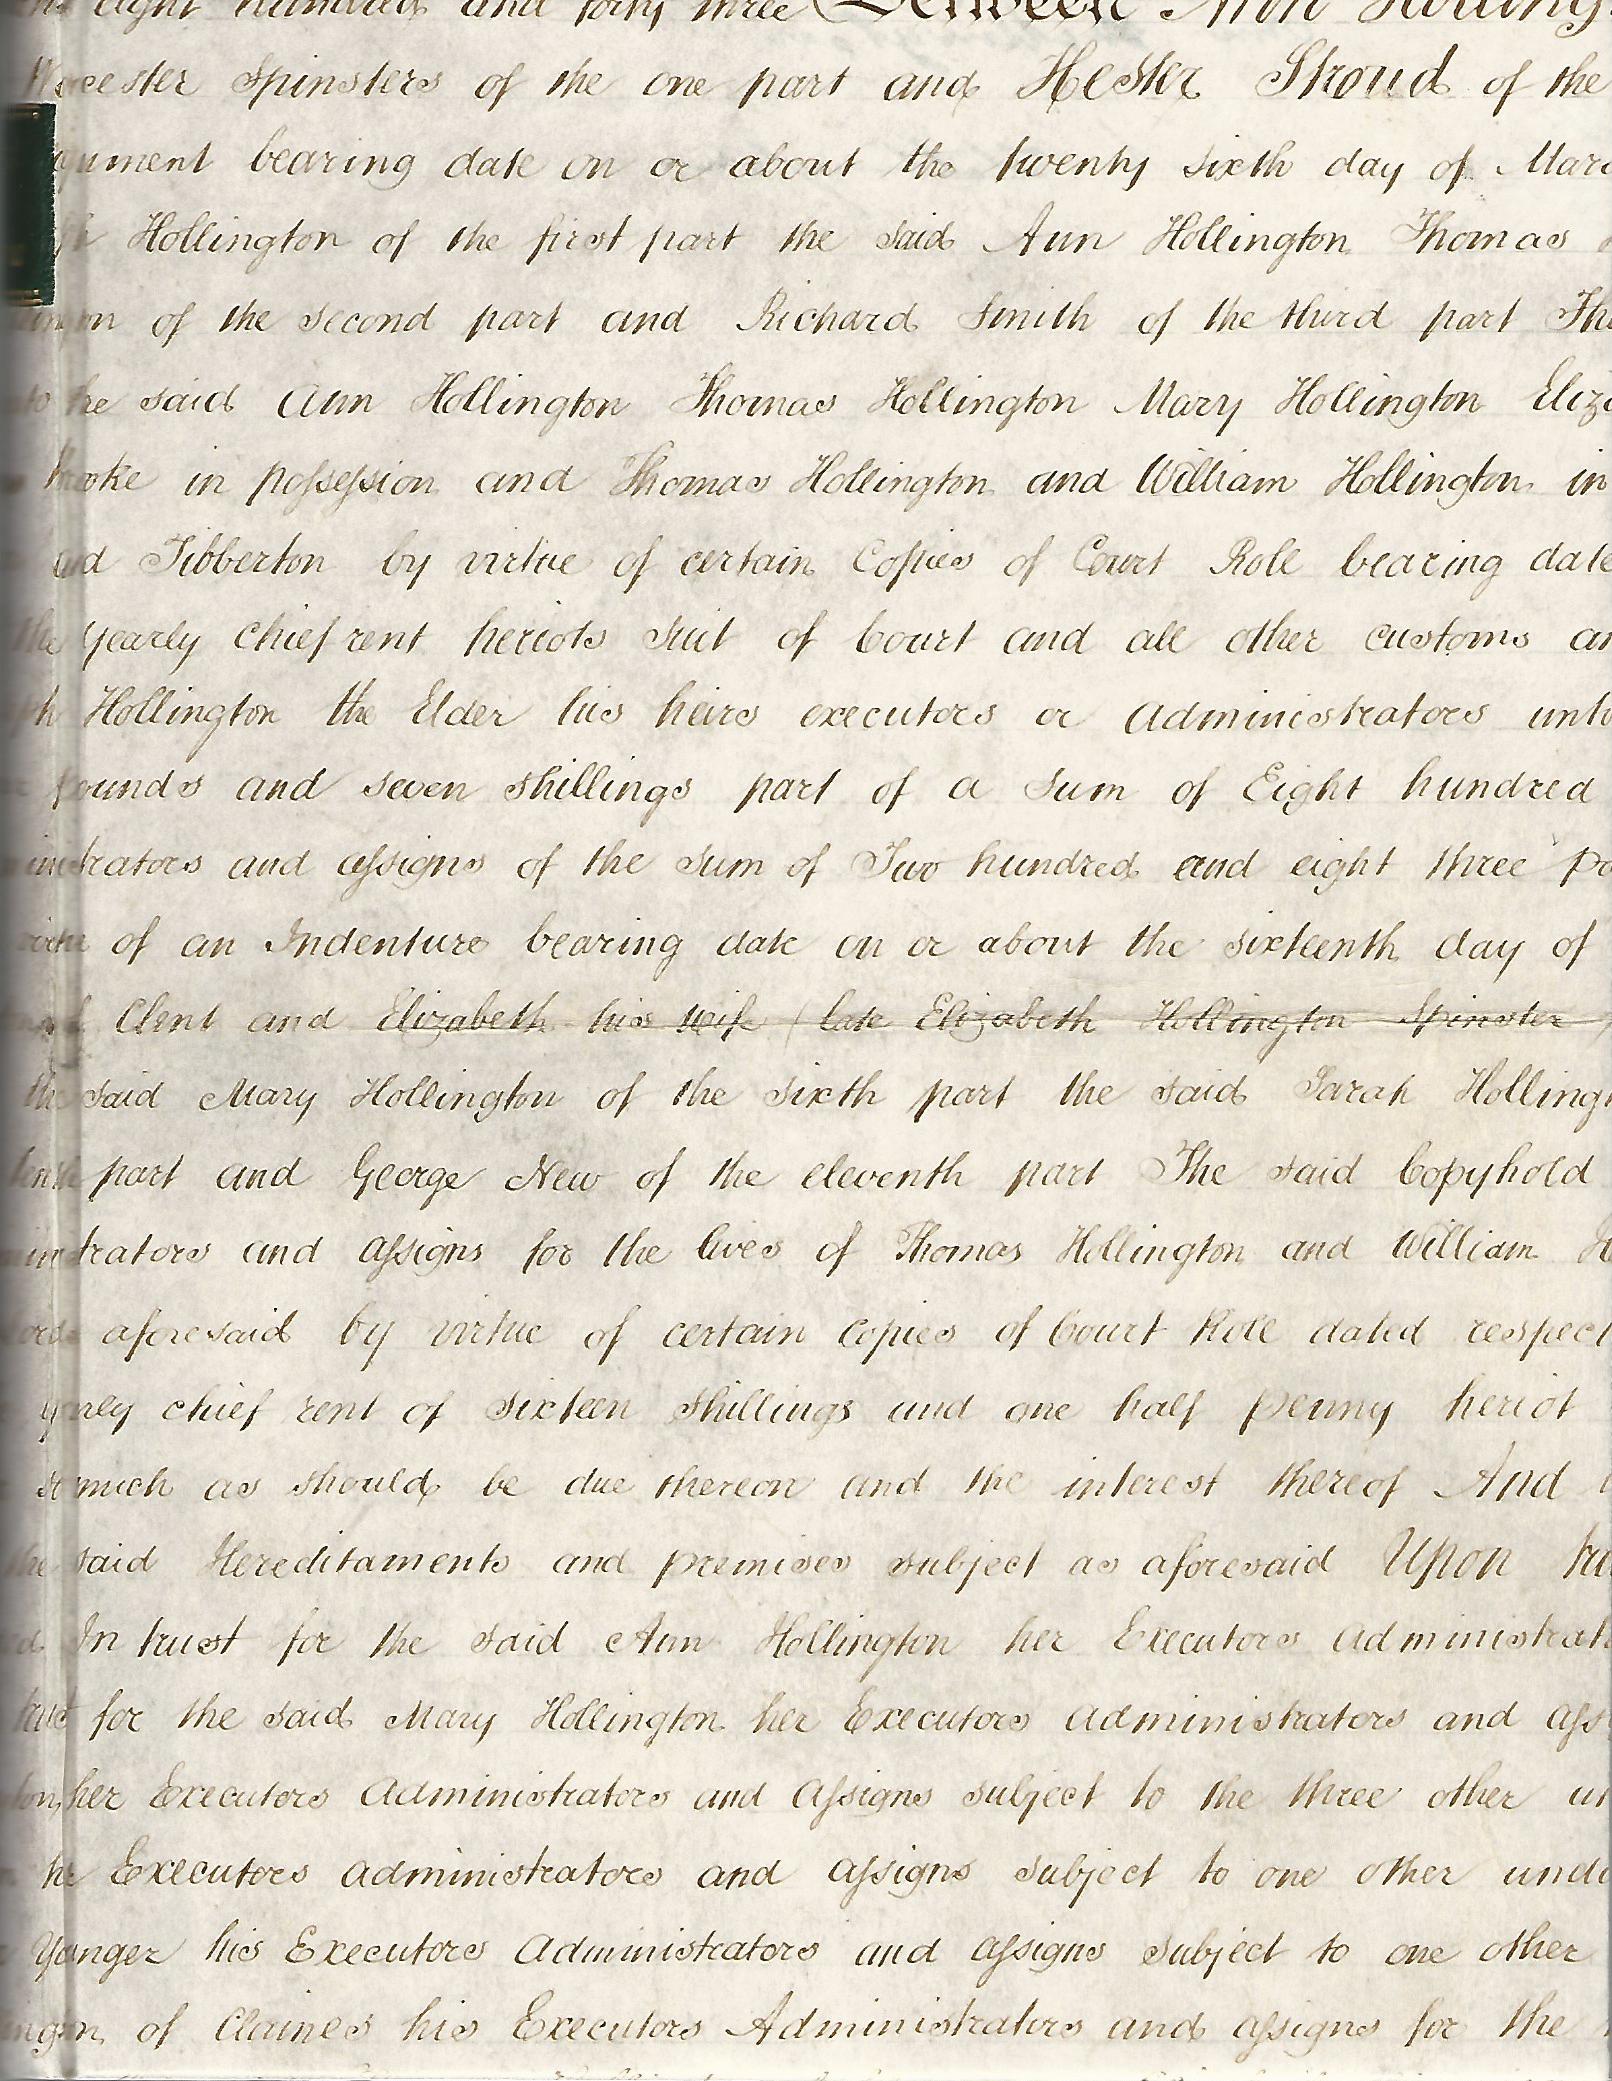 eight hundred and forty three Between Ann Holling
Worcester Spinsters of the one part and Hester Stroud of the
bearing date on or about the twenty sixth day of Marc
Hollington of the first part the said Ann Hollington Thomas
of the second part and Richard Smith of the third part The
to the said Ann Hollington Thomas Hollington Mary Hollington Eliza
in possession and Thomas Hollington and William Hollington in
and Tibberton by virtue of certain Copies of Court Role bearing date
the yearly chief rent heriots suit of Court and all other customs an
Hollington the Elder his heirs executors or Administrators unto
pounds and seven shillings part of a sum of Eight hundred
inistrators and assigns of the sum of Two hundred and eight three Po
virtue of an Indenture bearing date on or about the sixteenth day of
Clent and Elizabeth his wife (late Elizabeth Hollington Spinster
the said Mary Hollington of the sixth part the said Sarah Hollingt
tenth part and George New of the eleventh part The said Copyhold
inistrators and assigns for the lives of Thomas Hollington and William H
aforesaid by virtue of certain Copies of Court Role dated respect
yearly chief rent of sixteen shillings and one half penny heriot
so much as should be due thereon and the interest thereof And
the said Hereditaments and premises subject as aforesaid Upon tru
In trust for the said Ann Hollington her Executors Administrat
trust for the said Mary Hollington her Executors Administrators and ass
ton her Executors Administrators and Assigns subject to the three other un
her Executors Administrators and assigns subject to one other unde
Yonger his Executors Administrators and assigns subject to one other
of Claines his Executors Administrators and assigns for the